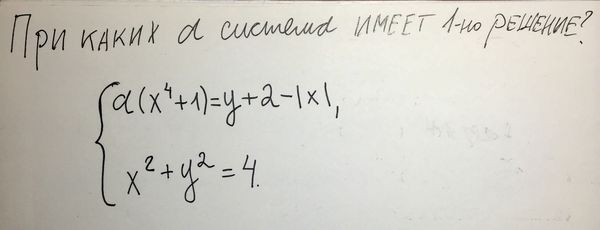 ПРИ КАКИХ а система ИМЕЕТ 1-но РЕШЕНИЕ?
а(x⁴+1)=y+2-|x|,
x²+y²=4.